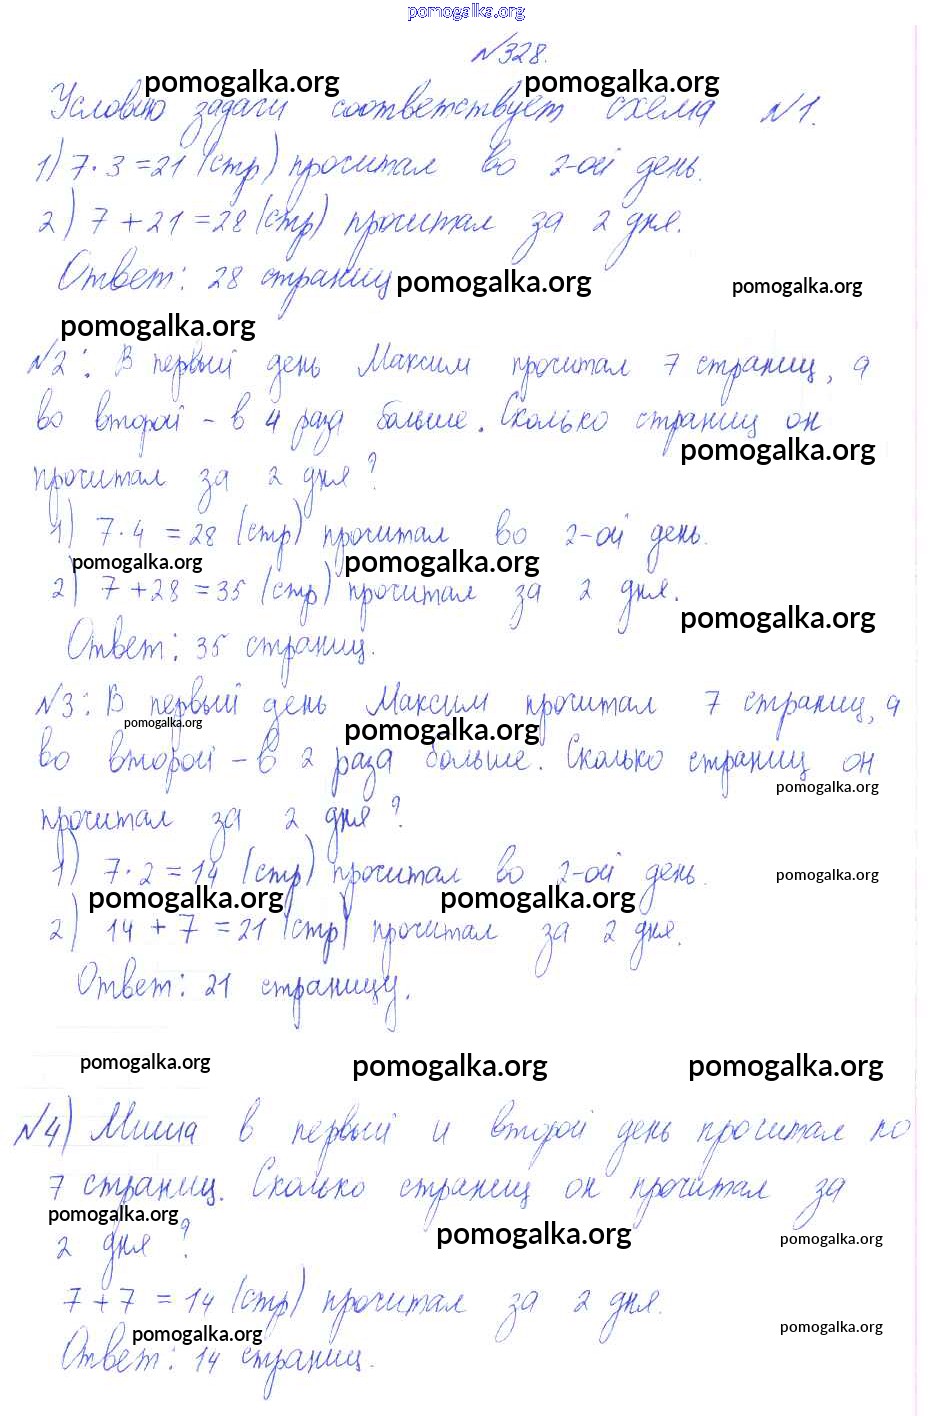 pomogalka.org
№328.
pomogalka.org pomogalka.org
Условию задачи соответствует схема №1.
1) 7·3=21 (стр) прочитал во 2-ой день.
2) 7+21=28 (стр) прочитал за 2 дня.
Ответ: 28 страниц pomogalka.org pomogalka.org
pomogalka.org
№2: В первый день Максим прочитал 7 страниц, а
во второй - в 4 раза больше. Сколько страниц он
pomogalka.org
прочитал за 2 дня?
1) 7·4 = 28 (стр) прочитал во 2-ой день.
pomogalka.org pomogalka.org
2) 7+28=35 (стр) прочитал за 2 дня.
pomogalka.org
Ответ: 35 страниц.
№3: В первый день Максим прочитал 7 страниц, а
pomogalka.org pomogalka.org
во второй - в 2 раза больше. Сколько страниц он
pomogalka.org
прочитал за 2 дня?
1) 7·2=14 (стр) прочитал во 2-ой день.
pomogalka.org
pomogalka.org pomogalka.org
2) 14+7=21 (стр) прочитал за 2 дня.
Ответ: 21 страницу.
pomogalka.org pomogalka.org pomogalka.org
№4) Миша в первый и второй день прочитал по
7 страниц. Сколько страниц он прочитал за
pomogalka.org
2 дня?
pomogalka.org pomogalka.org
7+7=14 (стр) прочитал за 2 дня.
pomogalka.org pomogalka.org
Ответ: 14 страниц.